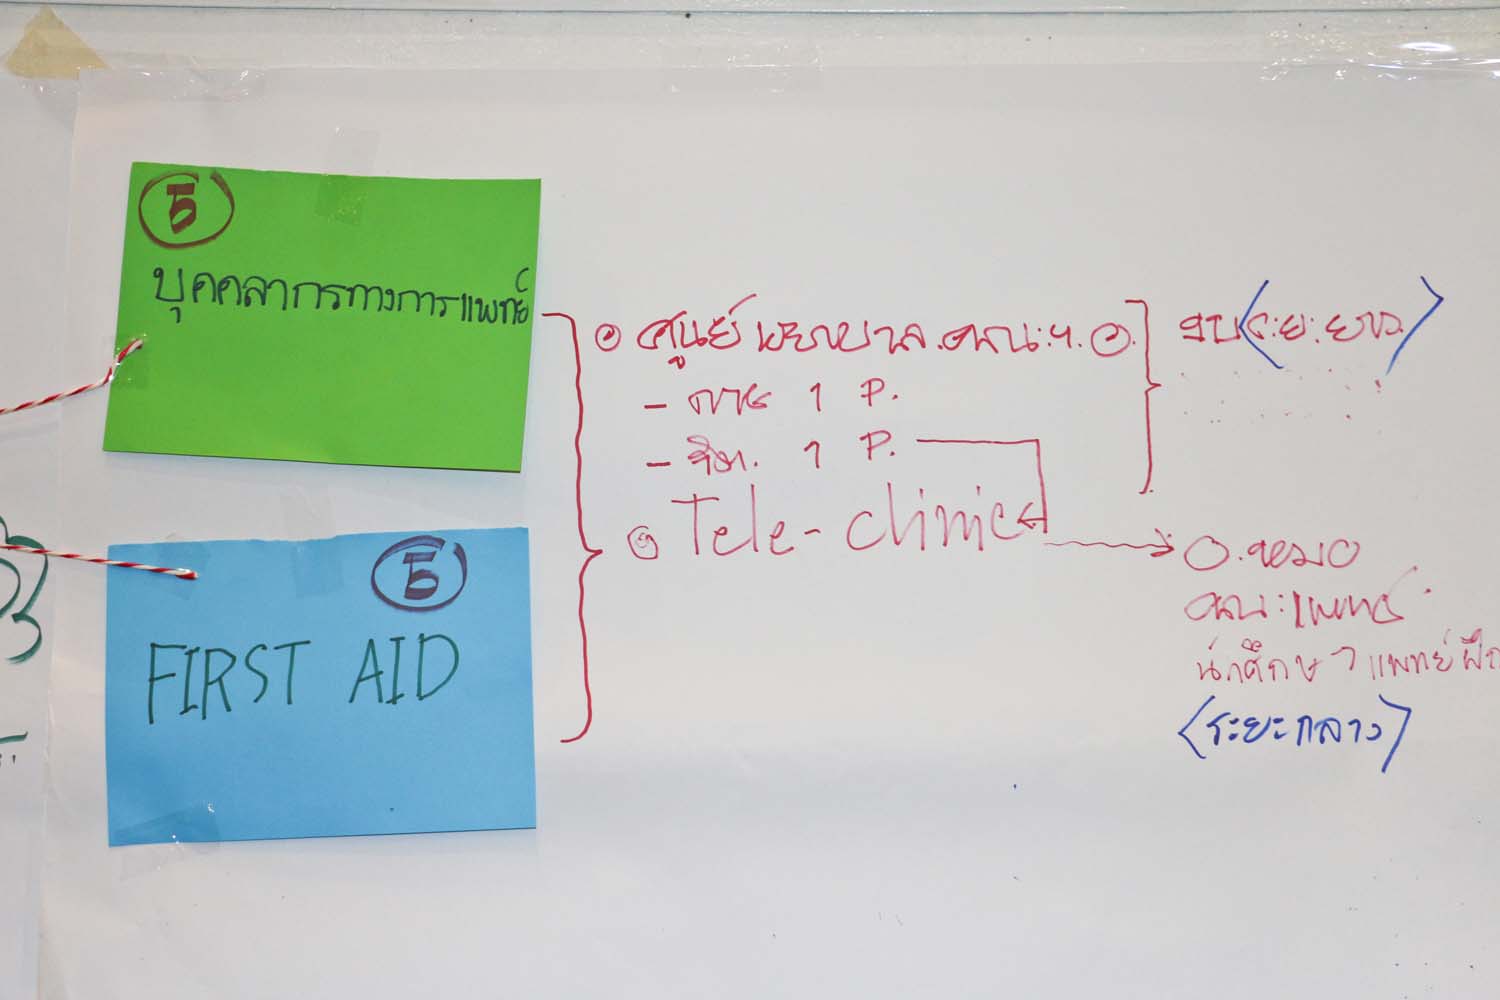 5
บุคคลากรทางการแพทย์
5
FIRST AID
ศูนย์พยาบาล.คณะฯ.
- กาย 1 P.
- จิต. 1 P.
Tele-clinic
งบ <ระยะยาว>
อ.หมอ
คณะแพทย์
นักศึกษาแพทย์ฝึก
<ระยะกลาง>